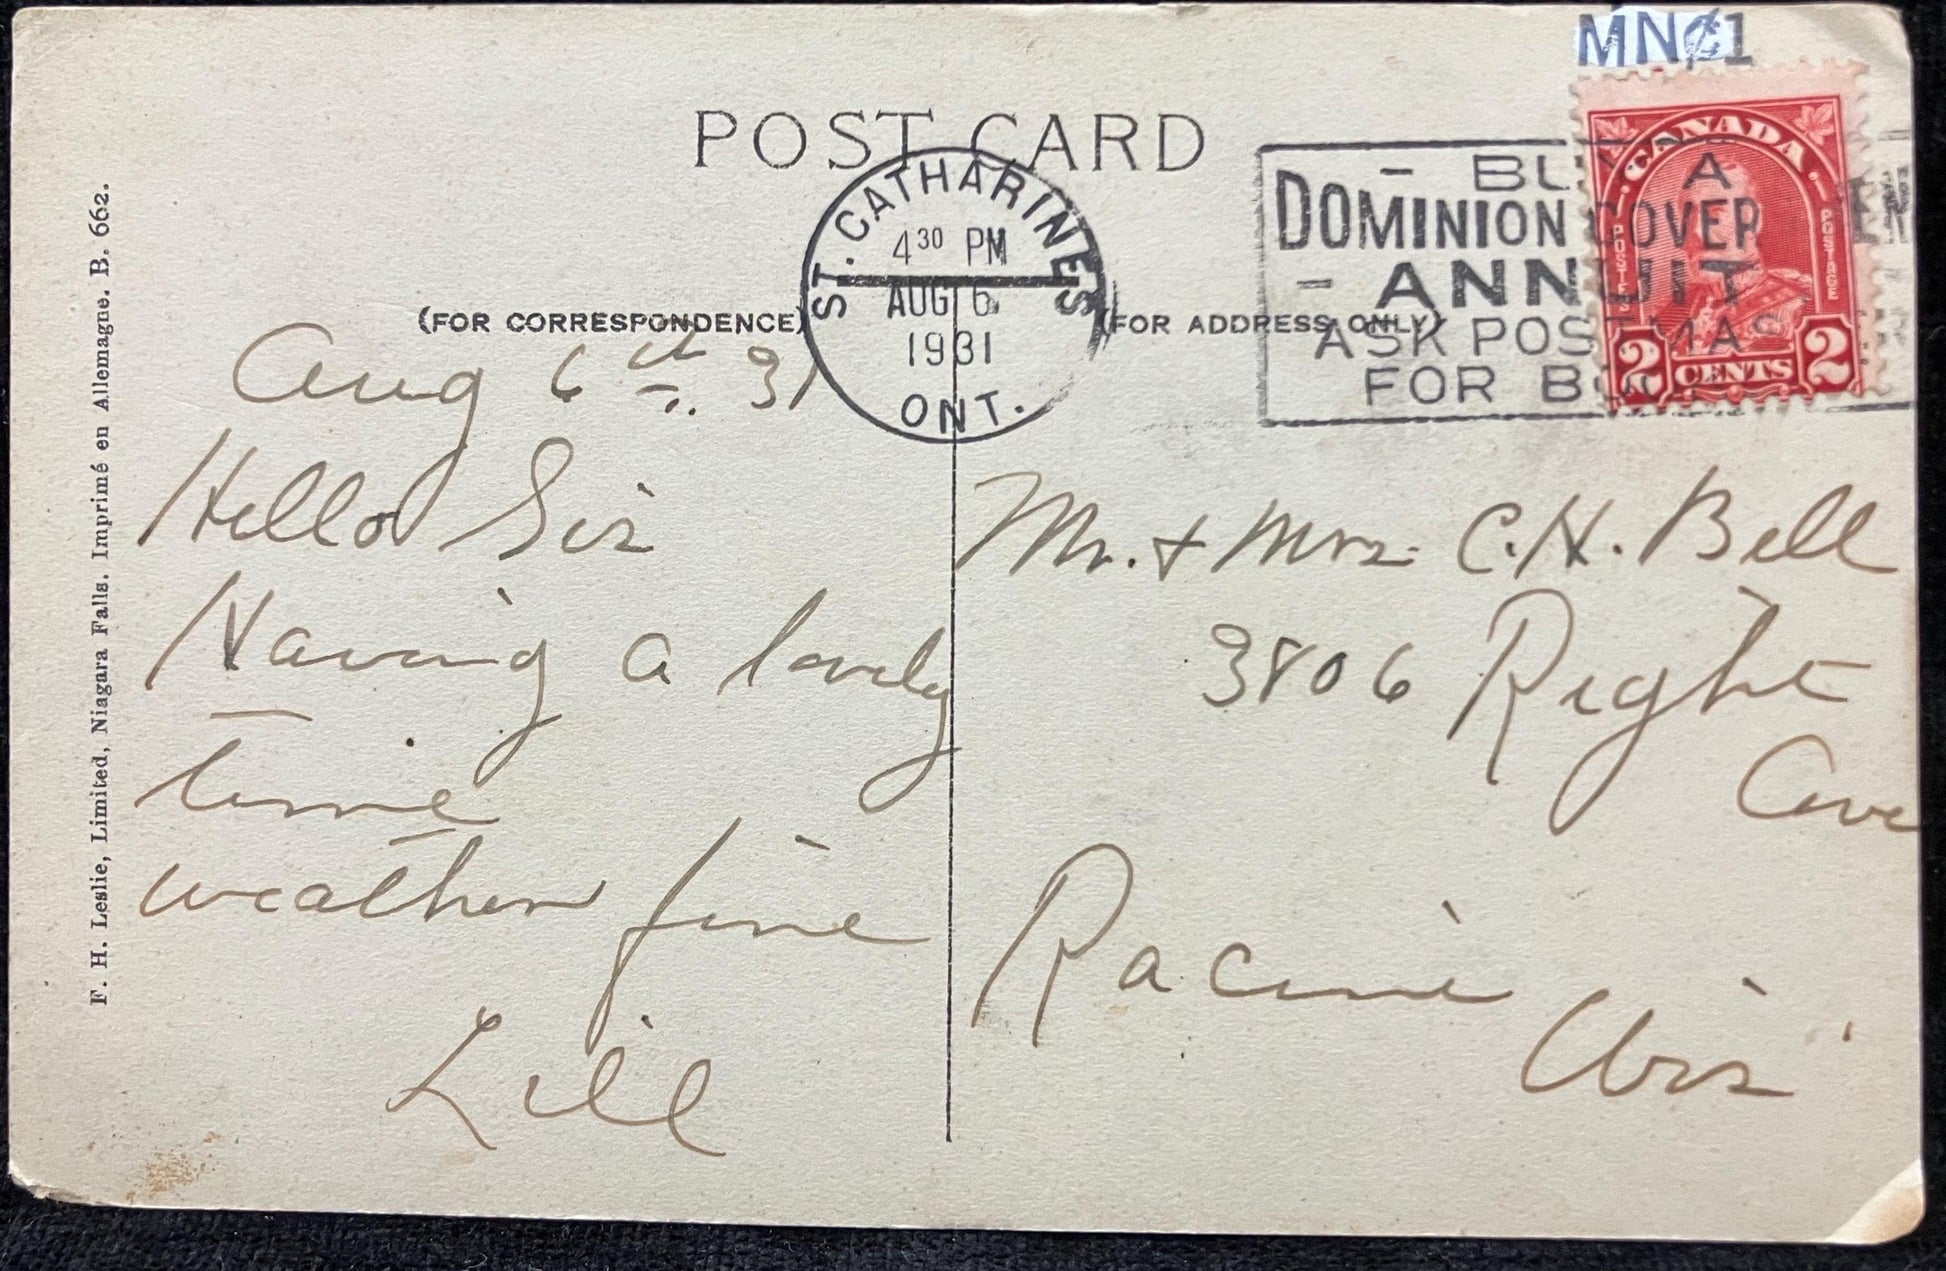 MN¢1
POST CARD
ST. CATHARINES
4 30 PM
AUG 6
1931
ONT.
- BUY A
DOMINION GOVERNMENT
- ANNUITY
ASK POSTMASTER
FOR
CANADA
POSTES POSTAGE
2 CENTS 2
(FOR CORRESPONDENCE)
(FOR ADDRESS ONLY)
Aug 6th. 31
Hello Sis
Having a lovely
time
weather fine
Lill
Mr. & Mrs. C. H. Bell
3806 Right
Ave
Racine
Wis
F. H. Leslie, Limited, Niagara Falls. Imprimé en Allemagne. B. 662.